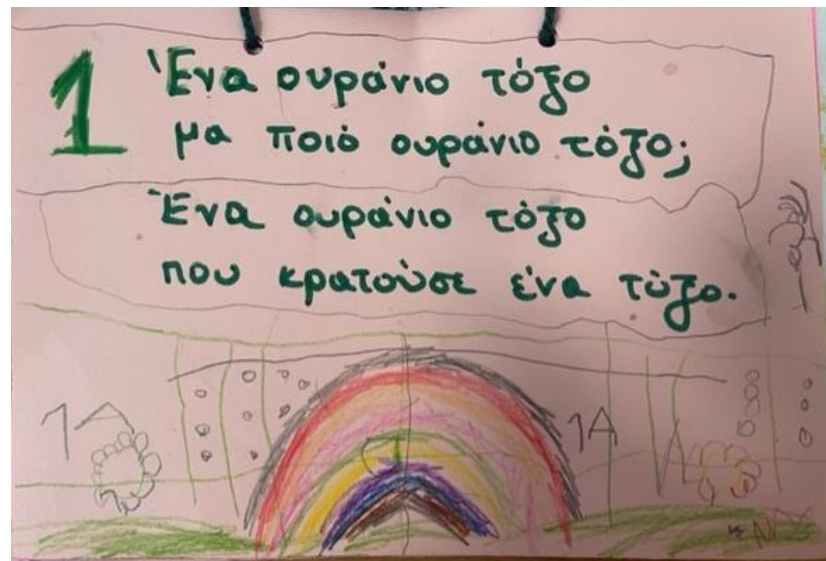 1 Ένα ουράνιο τόξο
μα ποιό ουράνιο τόξο;
Ένα ουράνιο τόξο
που κρατούσε ένα τόξο.
1A
1A